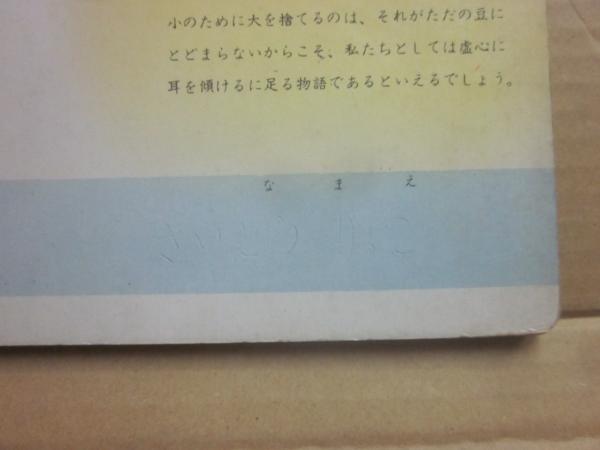 小のために大を捨てるのは、それがただの豆に
とどまらないからこそ、私たちとしては虚心に
耳を傾けるに足る物語であるといえるでしょう。
なまえ
さいとう